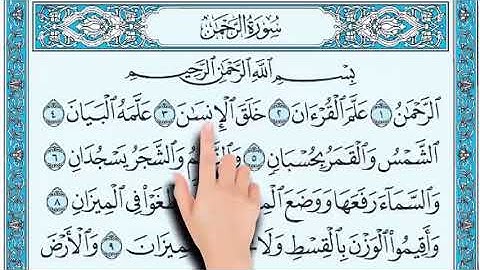 سُورَةُ الرَّحْمَٰن
بِسْمِ ٱللَّهِ ٱلرَّحْمَٰنِ ٱلرَّحِيمِ
ٱلرَّحْمَٰنُ ١ عَلَّمَ ٱلْقُرْءَانَ ٢ خَلَقَ ٱلْإِنسَٰنَ ٣ عَلَّمَهُ ٱلْبَيَانَ ٤
ٱلشَّمْسُ وَٱلْقَمَرُ بِحُسْبَانٍ ٥ وَٱلشَّجَرُ يَسْجُدَانِ ٦
وَٱلسَّمَآءَ رَفَعَهَا وَوَضَعَ فِى ٱلْمِيزَانِ ٨
وَأَقِيمُوا۟ ٱلْوَزْنَ بِٱلْقِسْطِ وَلَا ٱلْمِيزَانَ ٩ وَٱلْأَرْضَ